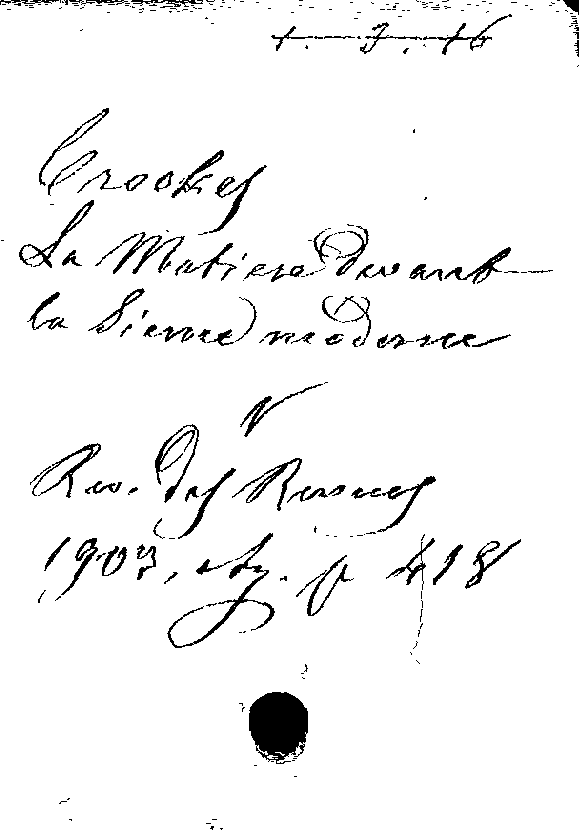 1. 3. 16
Crookes
La Matiere devant
la Sience moderne
v
Rev. des Revues
1903, p 418